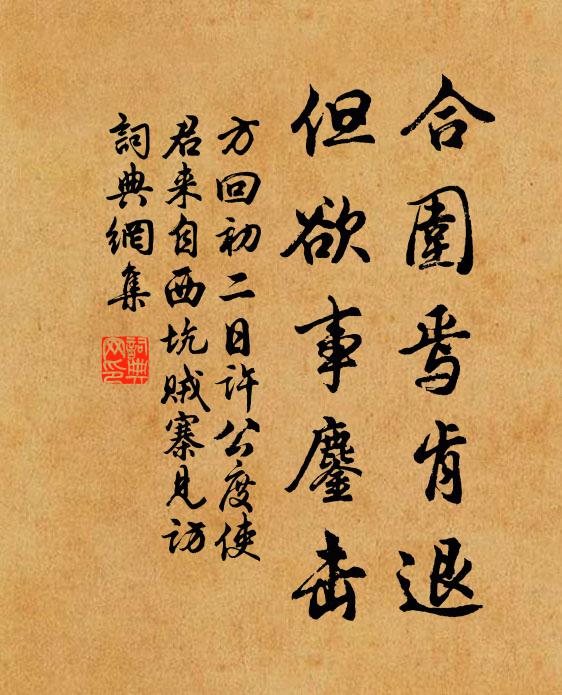 合圍焉肯退
但欲事鏖击
方回初二日许公度使
君来自西坑贼寨见访
詞典網集
詞典网印